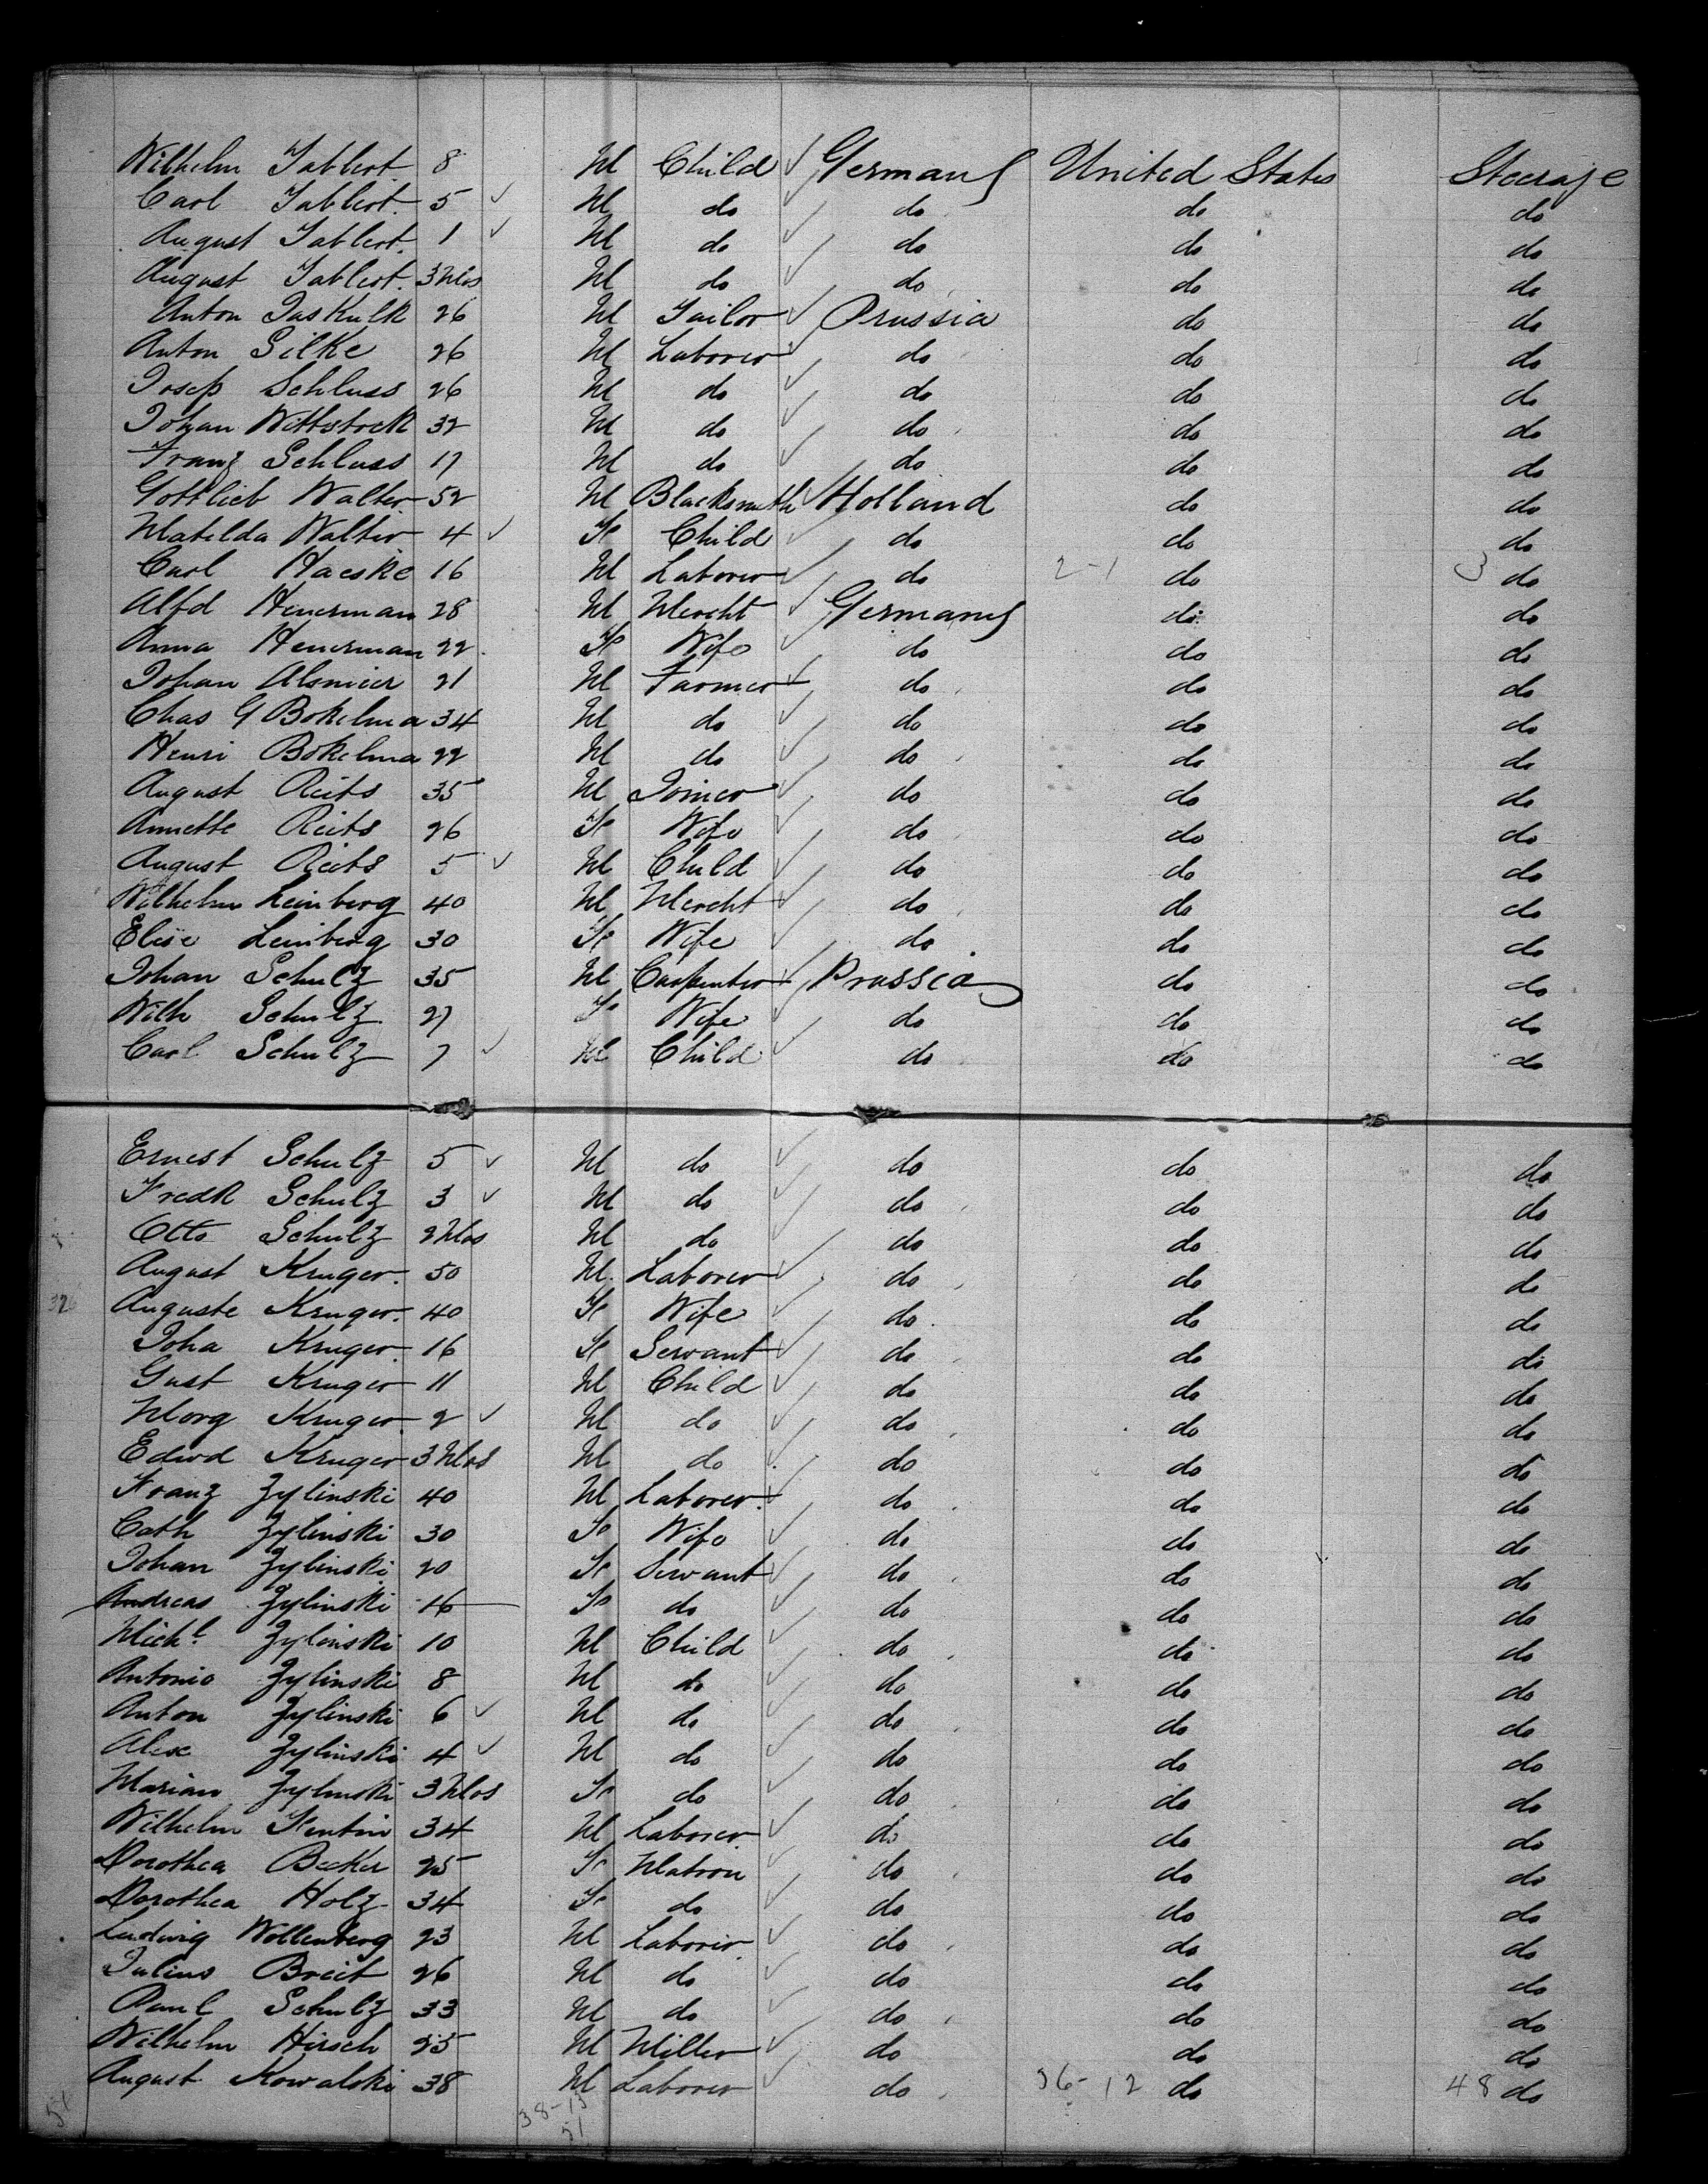 Wilhelm Tablert. 8 M Child ✓ Germany United States Steerage
Carl Tablert. 5 ✓ M do ✓ do do do
August Tablert. 1 ✓ M do ✓ do do do
August Tablert. 3 Mos M do ✓ do do do
Anton Jaskulk 26 M Tailor ✓ Prussia do do
Anton Gilke 26 M Laborer ✓ do do do
Josep Schluss 26 M do ✓ do do do
Johan Wittstock 32 M do ✓ do do do
Franz Schluss 17 M do ✓ do do do
Gottlieb Walter 52 M Blacksmith ✓ Holland do do
Matilda Walter 4 ✓ F Child ✓ do do do
Carl Haeske 16 M Laborer ✓ do 2-1 do 3 do
Alfd Heuerman 28 M Mercht ✓ Germany do do
Anna Heuerman 22 F Wife ✓ do do do
Johan Alsmier 21 M Farmer ✓ do do do
Chas G Bokelma 34 M do ✓ do do do
Henri Bokelma 22 M do ✓ do do do
August Reits 35 M Joiner ✓ do do do
Annette Reits 26 F Wife ✓ do do do
August Reits 5 ✓ M Child ✓ do do do
Wilhelm Leinberg 40 M Mercht ✓ do do do
Elise Leinberg 30 F Wife ✓ do do do
Johan Schulz 35 M Carpenter ✓ Prussia do do
Wilh Schulz 27 F Wife ✓ do do do
Carl Schulz 7 ✓ M Child ✓ do do do
Ernest Schulz 5 ✓ M do ✓ do do do
Fredk Schulz 3 ✓ M do ✓ do do do
Otto Schulz 2 Mos M do ✓ do do do
August Kruger. 50 M Laborer ✓ do do do
Auguste Kruger. 40 F Wife ✓ do do do
Joha Kruger. 16 F Servant ✓ do do do
Gust Kruger 11 M Child ✓ do do do
Morg Kruger 2 ✓ M do ✓ do do do
Edwd Kruger 3 Mos M do ✓ do do do
Franz Zylinski 40 M Laborer. ✓ do do do
Cath Zylinski 30 F Wife ✓ do do do
Johan Zylinski 20 F Servant ✓ do do do
Andreas Zylinski 16 F do ✓ do do do
Michl Zylinski 10 M Child ✓ do do do
Antonio Zylinski 8 M do ✓ do do do
Anton Zylinski 6 ✓ M do ✓ do do do
Alex Zylinski 4 ✓ M do ✓ do do do
Marian Zylinski 3 Mos F do ✓ do do do
Wilhelm 34 M Laborer ✓ do do do
Dorothea Becker 25 F Matron ✓ do do do
Dorothea Holz 34 F do ✓ do do do
Ludwig Wollenberg 23 M Laborer ✓ do do do
Julius Breit 26 M do ✓ do do do
Paul Schulz 33 M do ✓ do do do
Wilhelm Hirsch 25 M Miller ✓ do do do
August Kowalski 38 M Laborer ✓ do 36-12 do 48 do
51 38-13
51